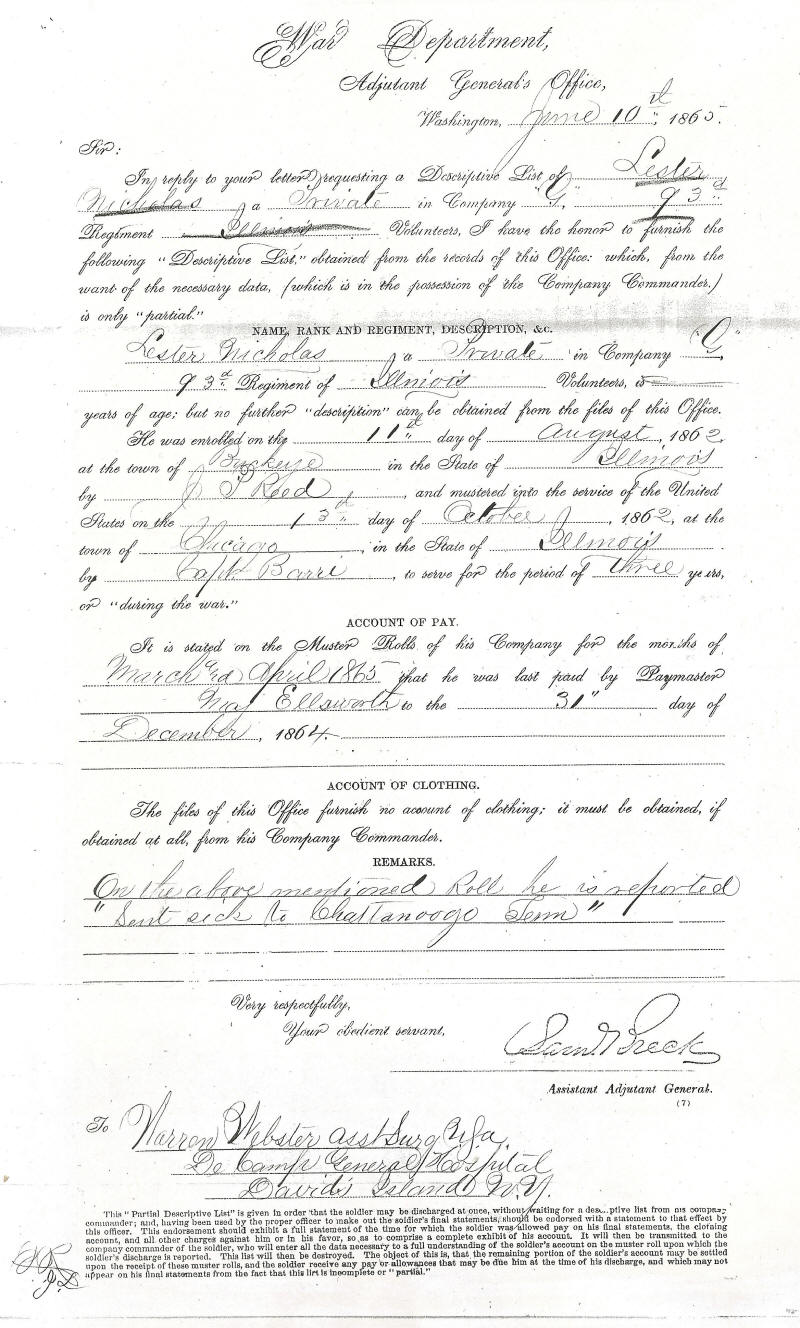 War Department,
Adjutant General's Office,
Washington, June 10th, 1865.
Sir:
In reply to your letter requesting a Descriptive List of Lester
Nicholas a Private in Company "G," 93d
Regiment Illinois Volunteers, I have the honor to furnish the
following "Descriptive List," obtained from the records of this Office: which, from the
want of the necessary data, (which is in the possession of the Company Commander,)
is only "partial."
NAME, RANK AND REGIMENT, DESCRIPTION, &c.
Lester Nicholas a Private in Company "G,"
93d Regiment of Illinois Volunteers, is
years of age; but no further "description" can be obtained from the files of this Office.
He was enrolled on the 11th day of August, 1862
at the town of Buckeye in the State of Illinois
by J P Reed, and mustered into the service of the United
States on the 13th day of October, 1862, at the
town of Chicago, in the State of Illinois
by Capt. Barri, to serve for the period of three years,
or "during the war."
ACCOUNT OF PAY.
It is stated on the Muster Rolls of his Company for the months of
March and April 1865 that he was last paid by Paymaster
Maj Ellsworth to the 31" day of
December, 1864.
ACCOUNT OF CLOTHING.
The files of this Office furnish no account of clothing; it must be obtained, if
obtained at all, from his Company Commander.
REMARKS.
On the above mentioned Roll he is reported
"Sent sick to Chattanoogo Tenn"
Very respectfully,
Your obedient servant,
Saml Breck
Assistant Adjutant General.
(7)
To Warren Webster asst Surg USa,
De Camp General Hospital
Davids Island N.Y.
This "Partial Descriptive List" is given in order that the soldier may be discharged at once, without waiting for a descriptive list from his company
commander; and, having been used by the proper officer to make out the soldier's final statements, should be endorsed with a statement to that effect by
this officer. This endorsement should exhibit a full statement of the time for which the soldier was allowed pay on his final statements, the clothing
account, and all other charges against him or in his favor, so as to comprise a complete exhibit of his account. It will then be transmitted to the
company commander of the soldier, who will enter all the data necessary to a full understanding of the soldier's account on the muster roll upon which the
soldier's discharge is reported. This list will then be destroyed. The object of this is, that the remaining portion of the soldier's account may be settled
upon the receipt of these muster rolls, and the soldier receive any pay or allowances that may be due him at the time of his discharge, and which may not
appear on his final statements from the fact that this list is incomplete or "partial."